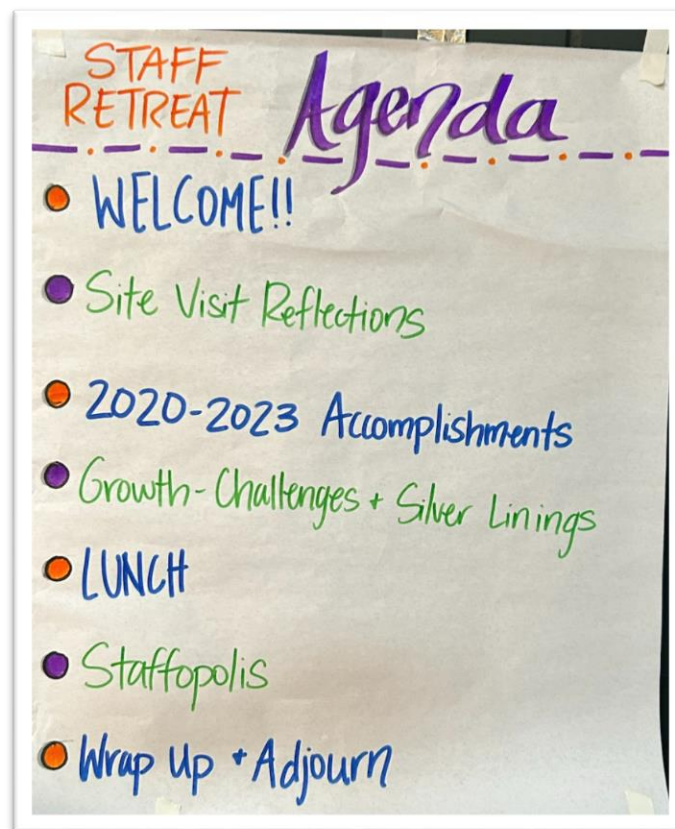 STAFF
RETREAT
Agenda
WELCOME!!
Site Visit Reflections
2020-2023 Accomplishments
Growth-Challenges + Silver Linings
LUNCH
Staffopolis
Wrap Up + Adjourn